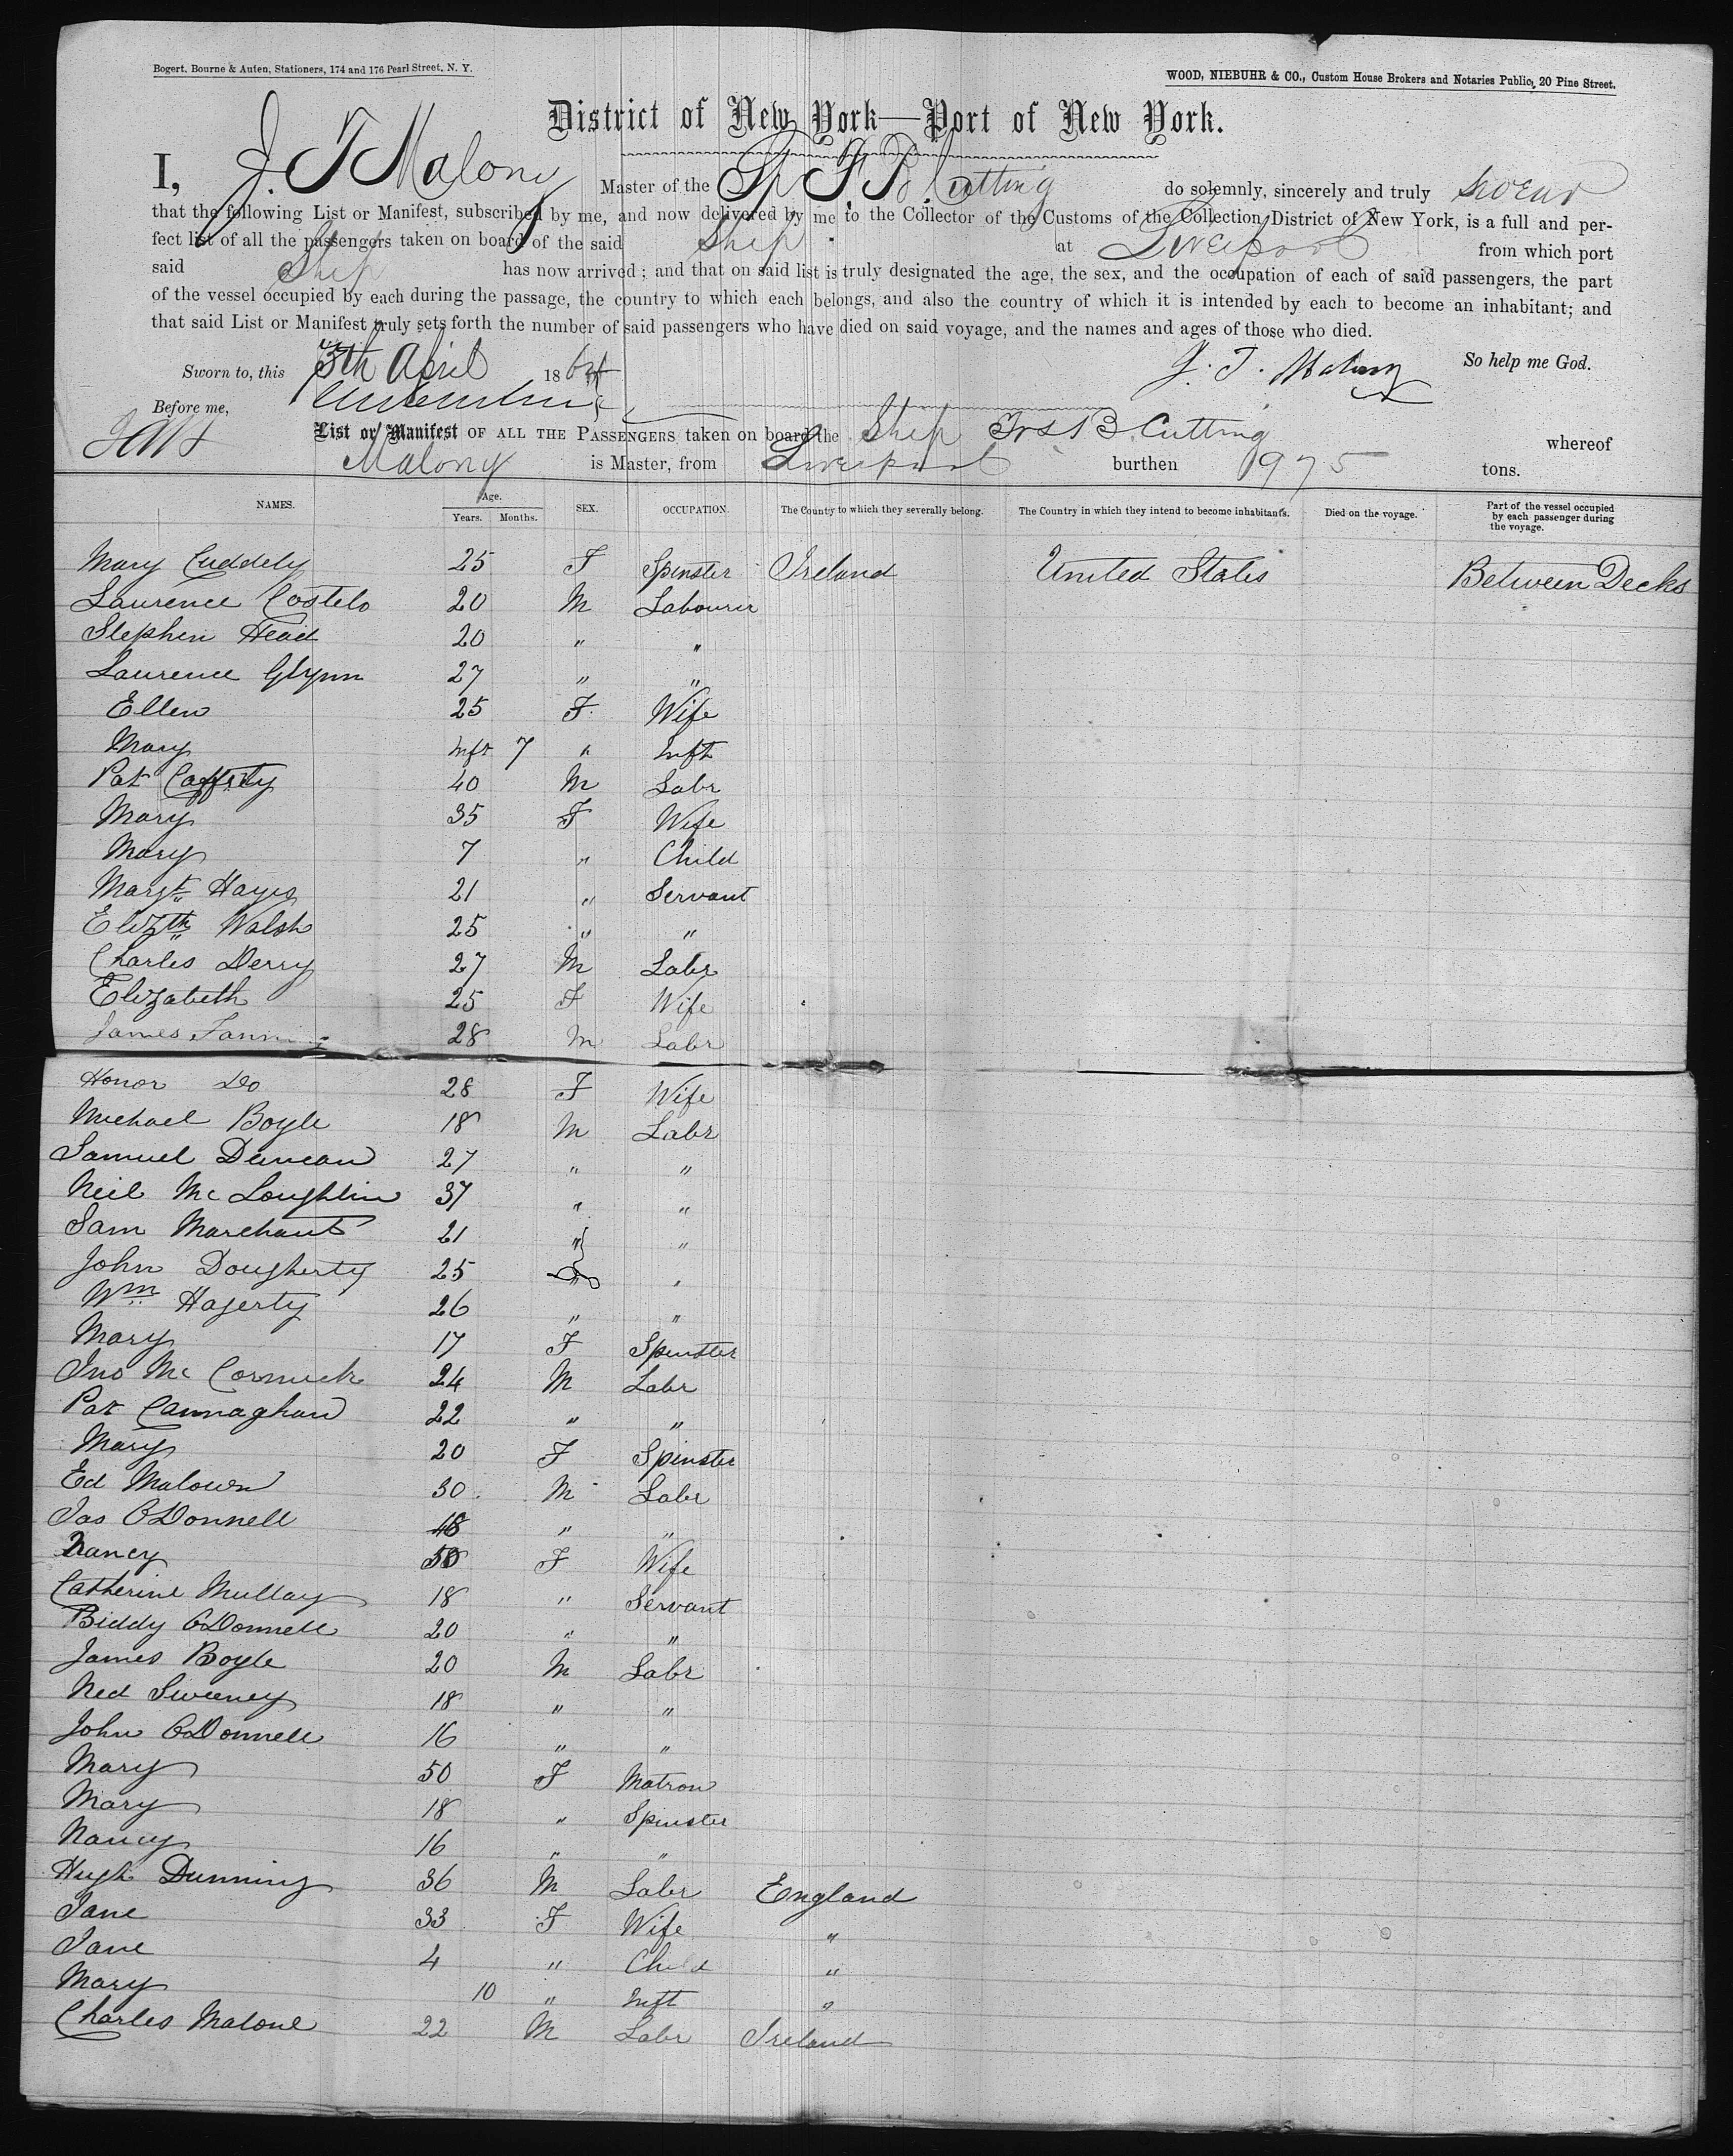 Bogert, Bourne & Auten, Stationers, 174 and 176 Pearl Street, N. Y.
WOOD, NIEBUHR & CO., Custom House Brokers and Notaries Public, 20 Pine Street.
District of New York—Port of New York.
I, J. T Malony Master of the Sp F. B. Cutting do solemnly, sincerely and truly swear
that the following List or Manifest, subscribed by me, and now delivered by me to the Collector of the Customs of the Collection District of New York, is a full and per-
fect list of all the passengers taken on board of the said Ship at Liverpool from which port
said Ship has now arrived; and that on said list is truly designated the age, the sex, and the occupation of each of said passengers, the part
of the vessel occupied by each during the passage, the country to which each belongs, and also the country of which it is intended by each to become an inhabitant; and
that said List or Manifest truly sets forth the number of said passengers who have died on said voyage, and the names and ages of those who died.
Sworn to, this 5th April 1864 J. T. Malony So help me God.
Before me,
List or Manifest OF ALL THE PASSENGERS taken on board the Ship Frs B. Cutting whereof
Malony is Master, from Liverpool burthen 975 tons.
NAMES. Age. Years. Months. SEX. OCCUPATION. The County to which they severally belong. The Country in which they intend to become inhabitants. Died on the voyage. Part of the vessel occupied by each passenger during the voyage.
Mary Cuddely 25 F Spinster Ireland United States Between Decks
Laurence Costelo 20 M Labourer
Stephen Head 20 " "
Laurence Glynn 27 " "
Ellen 25 F. Wife
Mary Inft 7 " Inft
Pat Caffrety 40 M Labr
Mary 35 F Wife
Mary 7 " Child
Margt Hayes 21 " Servant
Elizth Walsh 25 " "
Charles Derry 27 M Labr
Elizabeth 25 F Wife
James 28 M Labr
Honor Do 28 F Wife
Michael Boyle 18 M Labr
Samuel Duncan 27 " "
Neil McLoughlin 37 " "
Sam Marchant 21 " "
John Dougherty 25 " "
Wm Hagerty 26 " "
Mary 17 F Spinster
Jno McCormick 24 M Labr
Pat Cannaghan 22 " "
Mary 20 F Spinster
Ed Malown 30 M Labr
Jas O'Donnell 48 " "
Nancy 50 F Wife
Catherine Mullay 18 " Servant
Biddy O'Donnell 20 " "
James Boyle 20 M Labr
Ned Sweeney 18 " "
John O'Donnell 16 " "
Mary 50 F Matron
Mary 18 " Spinster
Nancy 16 " "
Hugh Dunning 36 M Labr England
Jane 33 F Wife "
Jane 4 " Child "
Mary 10 " Inft "
Charles Malone 22 M Labr Ireland